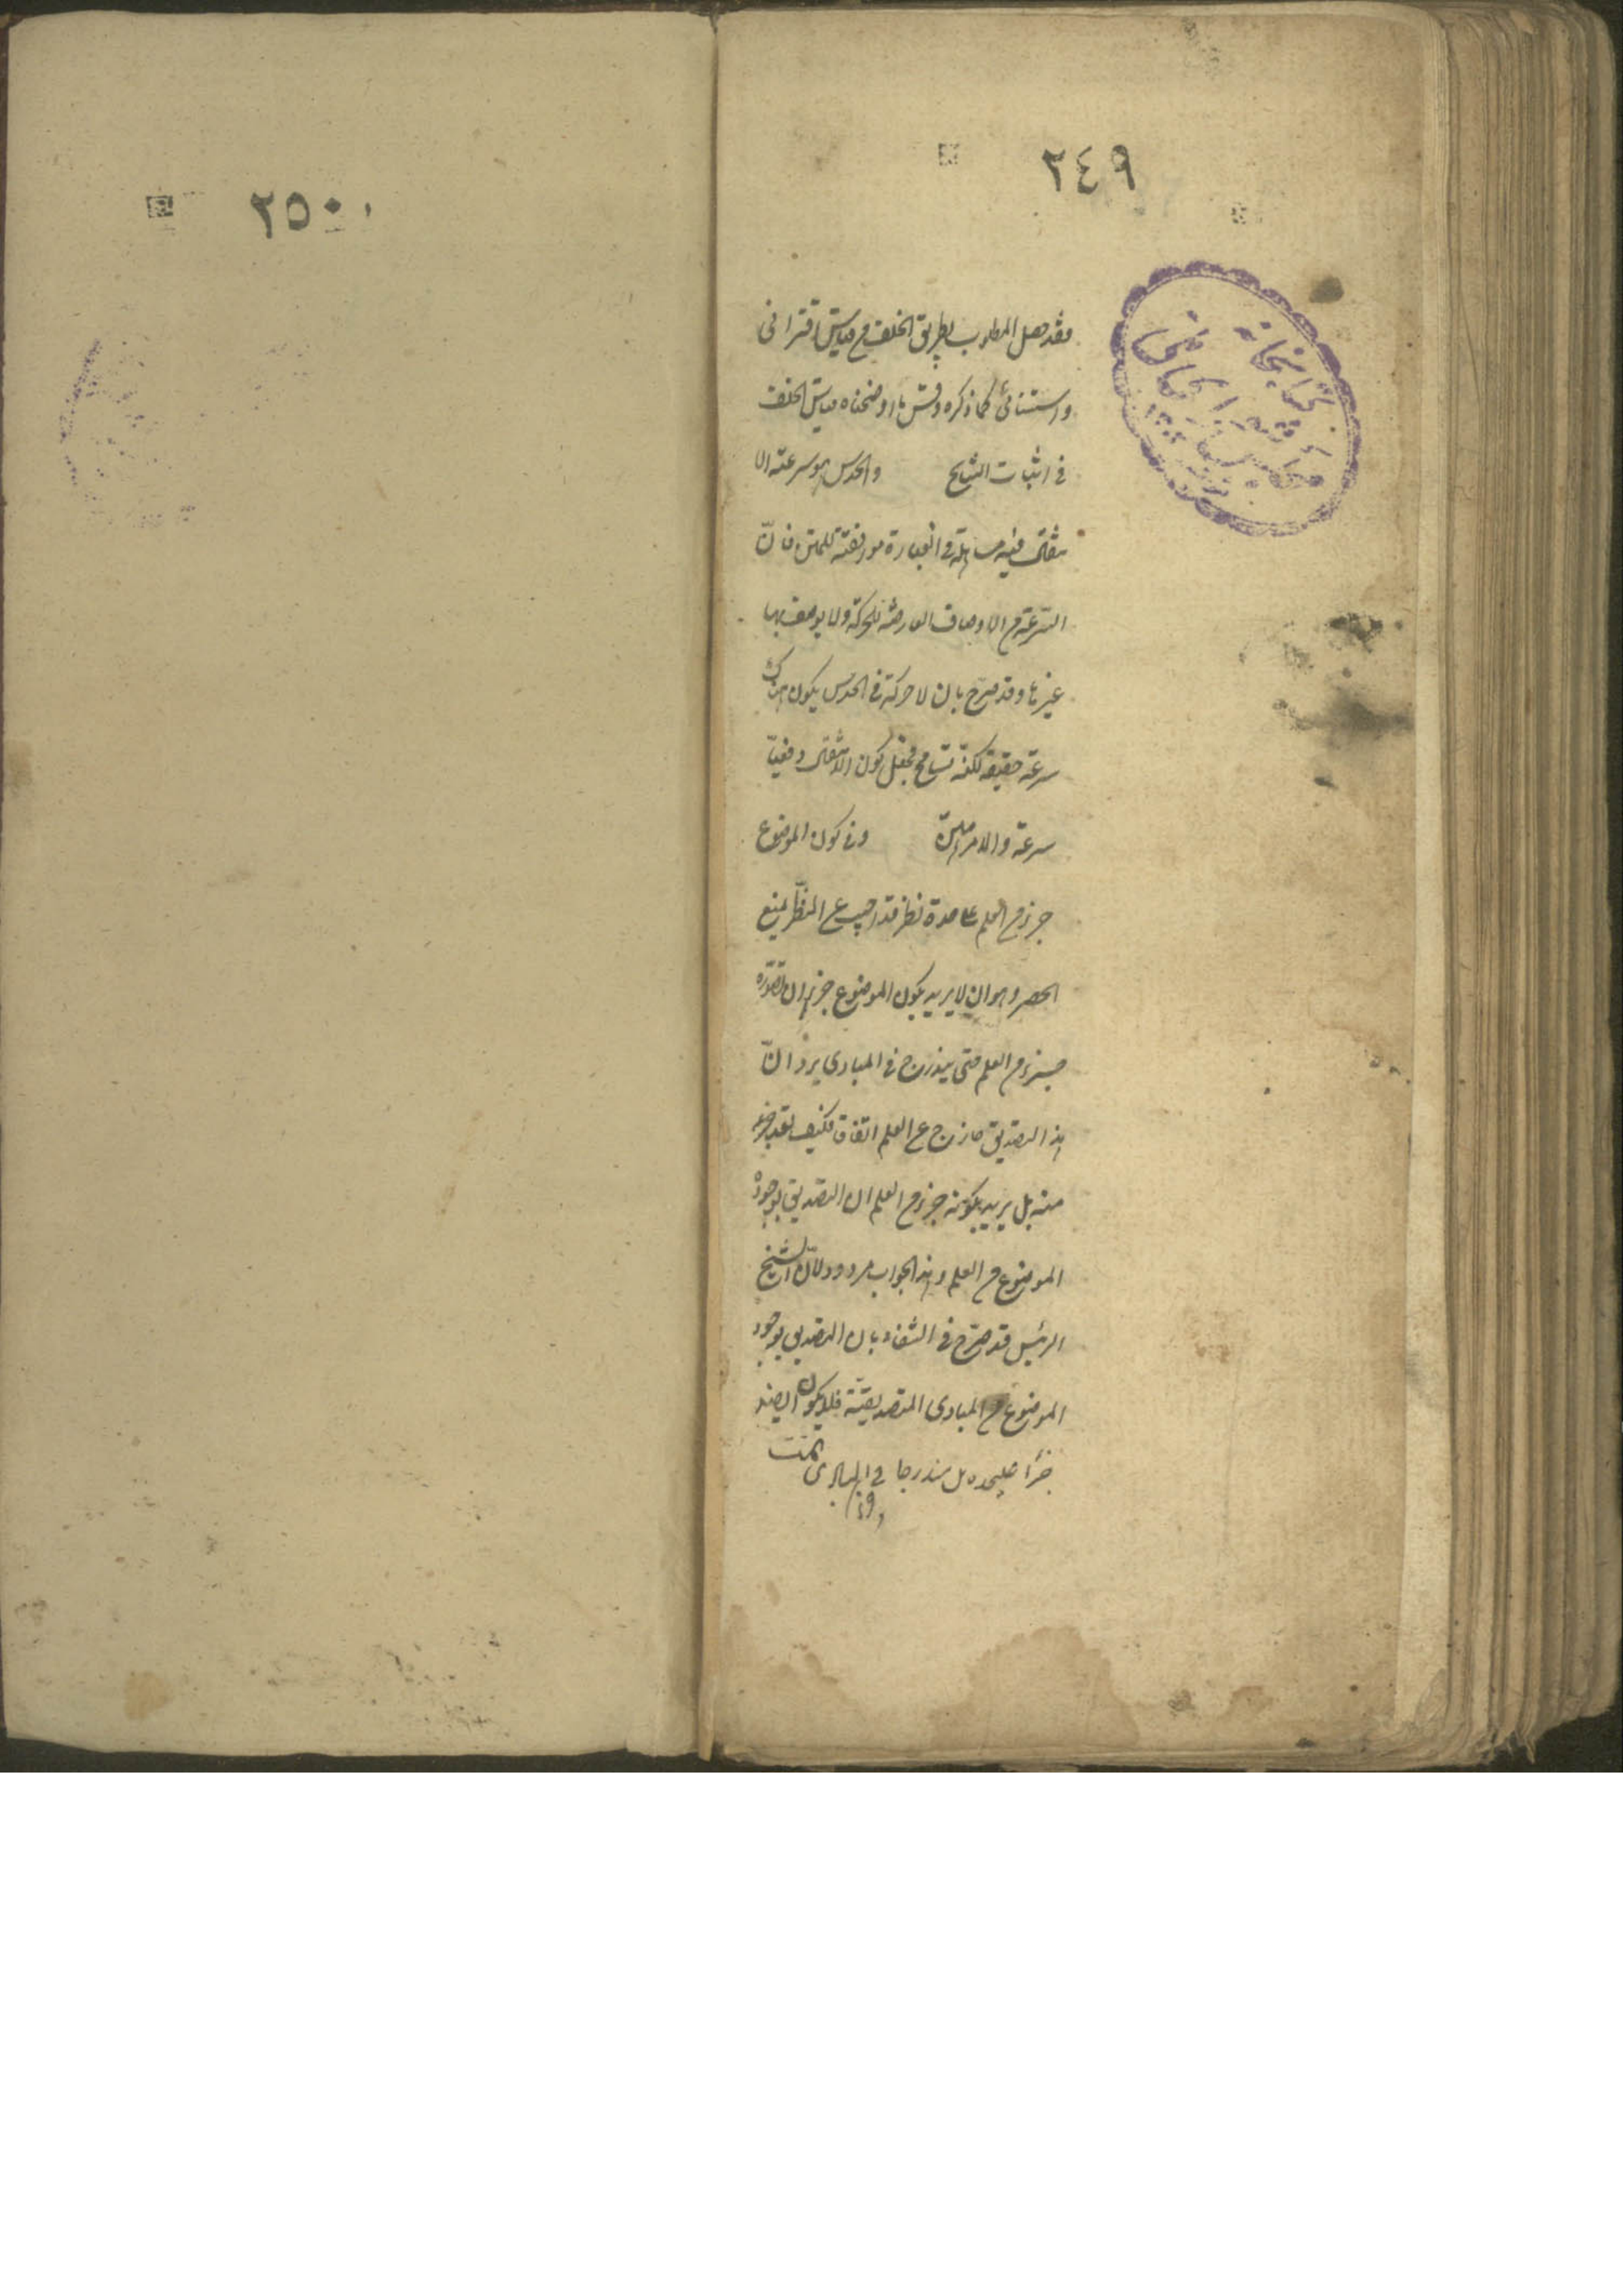 ٢٤٩
فقد حصل المطلوب بطريق الخلف من قياس اقترانى
واستثنائى كما ذكره وقس ما اوضحناه قياس الخلف
فى اثبات النتايج والحدس هو سرعة الا
نتقال فيه مساهلة فى العبارة موافقة للمتن فان
السرعة من الاوصاف العارضة للحركة ولا يوصف بها
غيرها وقد صرح بان لا حركة فى الحدس يكون هناك
سرعة حقيقة لكنه تسامح فجعل كون الانتقال دفعيا
سرعة والامر هين وفى كون الموضوع
جزء من العلم على حدة نظر قد اجيب عن النظر بمنع
الحصر وهو ان لا يريد بكون الموضوع جزء ان تصوره
جزء من العلم حتى يندرج فى المبادى يرد ان
هذا التصديق خارج عن العلم اتفاق فكيف يعد جزء
منه بل يريد بكونه جزء من العلم ان التصديق بوجود
الموضوع من العلم وهذا الجواب مردود لان الشيخ
الرئيس قد صرح فى الشفاء بان التصديق بوجود
الموضوع من المبادى التصديقية فلا يكون ايضا
جزأ عليحده بل مندرجا فى المبادى تمت
٢٥٠
كتابخانه